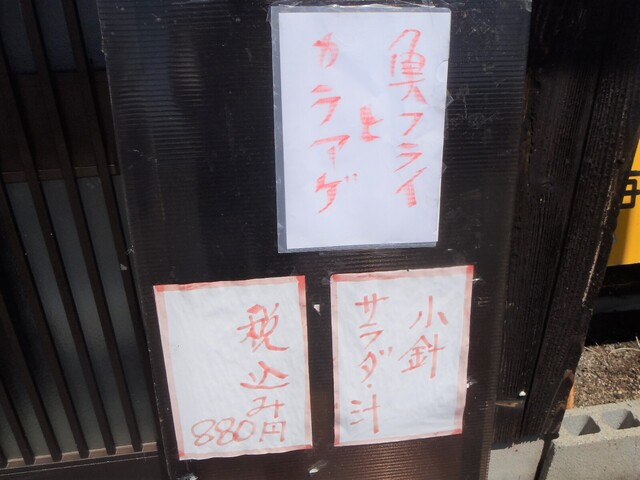 魚フライ
と
カラアゲ
小針
サラダ・汁
税込み
880円